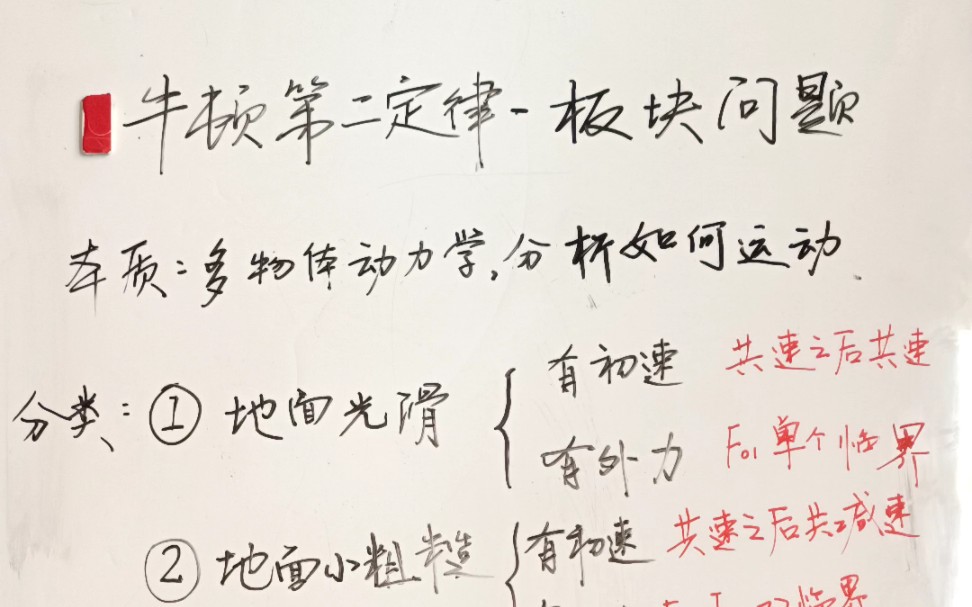 牛顿第二定律-板块问题
本质:多物体动力学,分析如何运动.
分类:① 地面光滑
有初速 共速之后共速
有外力 F01 单个临界
② 地面小粗糙
有初速 共速之后共减速
临界